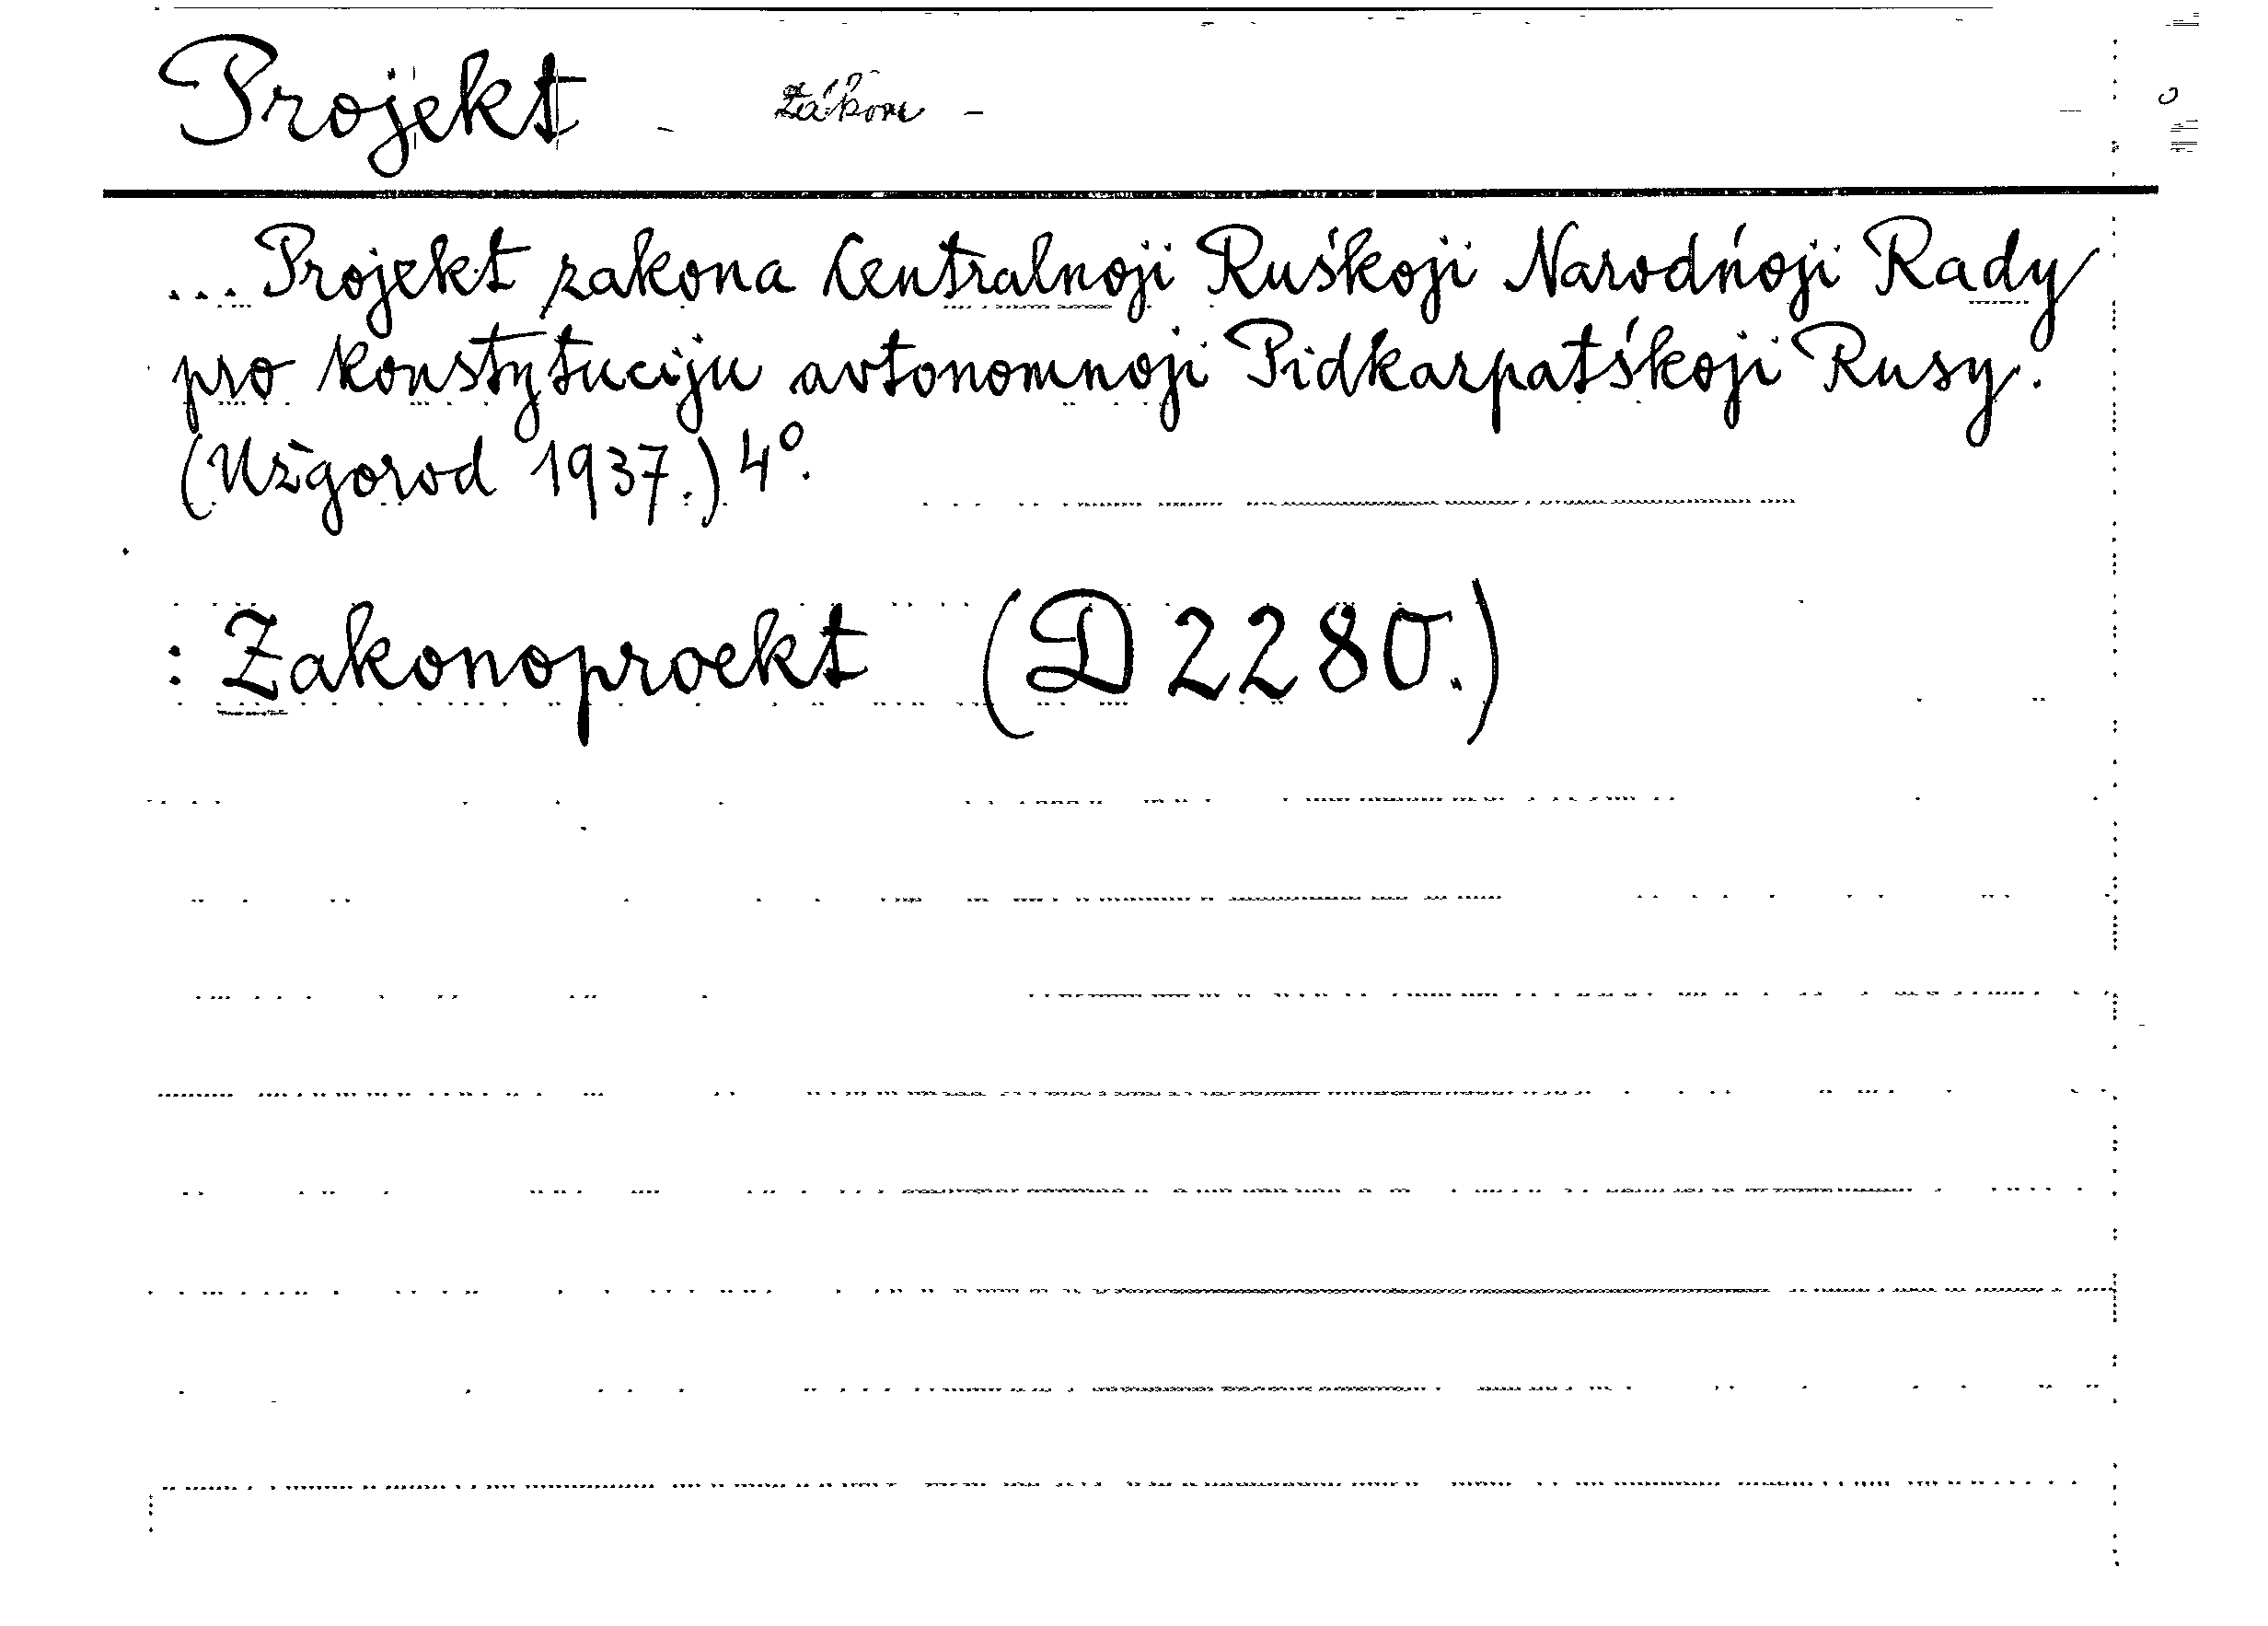 Projekt - zákon -
... Projekt zakona Centralnoji Ruśkoji Narodńoji Rady
pro konstytuciju avtonomnoji Pidkarpatśkoji Rusy.
(Užgorod 1937.) 4°.
: Zakonoproekt (D 2280.)